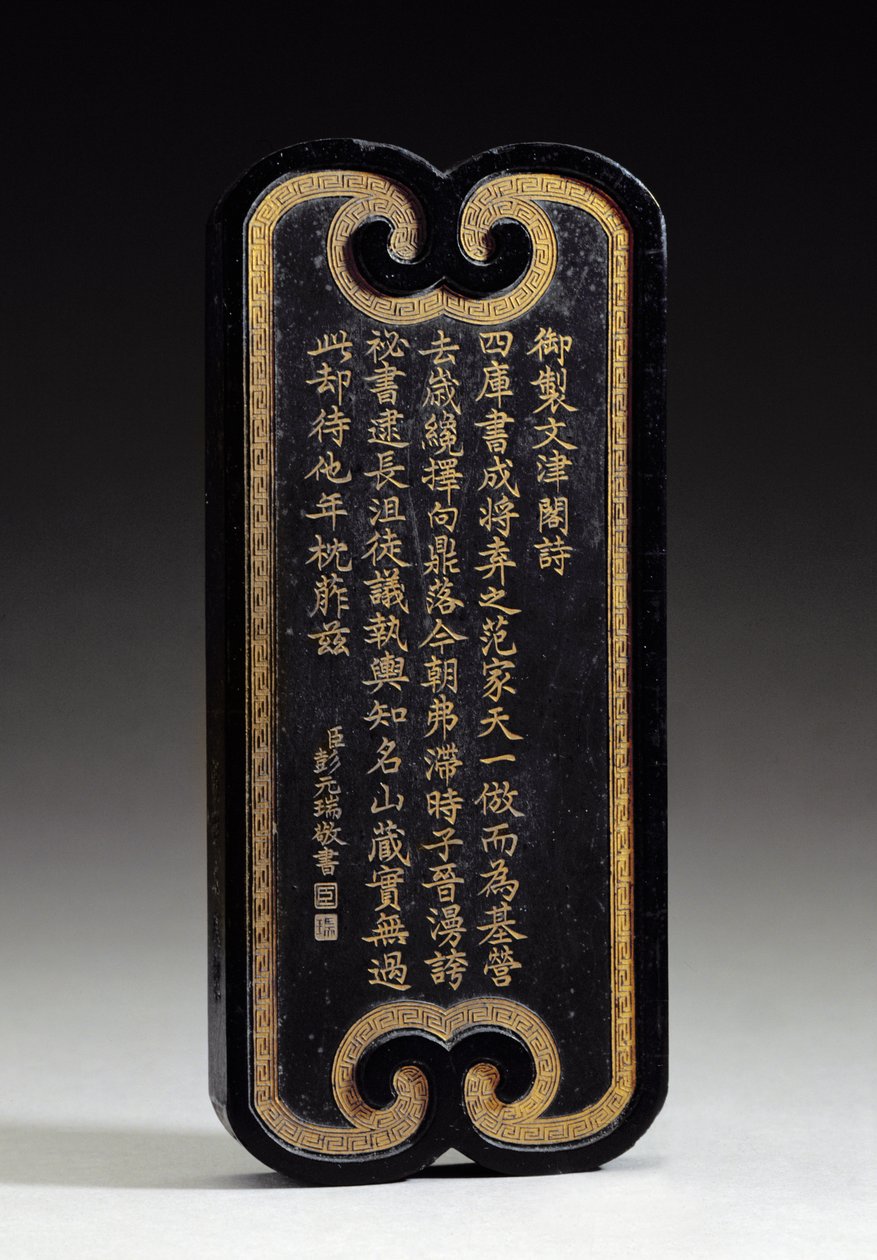 御製文津閣詩
四庫書成将弆之范家天一倣而為基營
去歳纔擇向鼎落今朝弗滯時子晉漫誇
祕書逮長沮徒議執輿知名山蔵實無過
此却待他年枕葄兹
臣彭元瑞敬書
臣
瑞